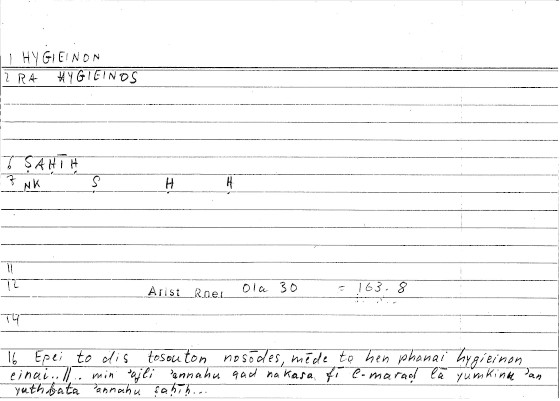 1 HYGIEINON
2 RA HYGIEINOS
6 ṢAḤĪḤ
7 NK Ṣ Ḥ Ḥ
11
12 Arist Rhet 01a 30 = 163.8
14
16 Epei to dis tosouton nosōdes, mēde to hen phanai hygieinon
einai..//.. min 'ajli 'annahu qad nakasa fī l-maraḍ lā yumkinu 'an
yuthbata 'annahu ṣaḥīḥ...